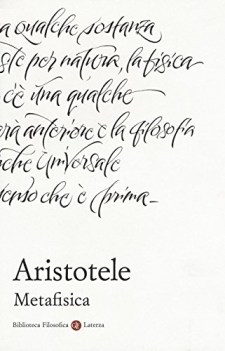 a qualche sostanza
ste per natura, la fisica
c'è una qualche
rà anteriore e la filosofia
nche universale
enso che è prima_
Aristotele
Metafisica
Biblioteca Filosofica Laterza